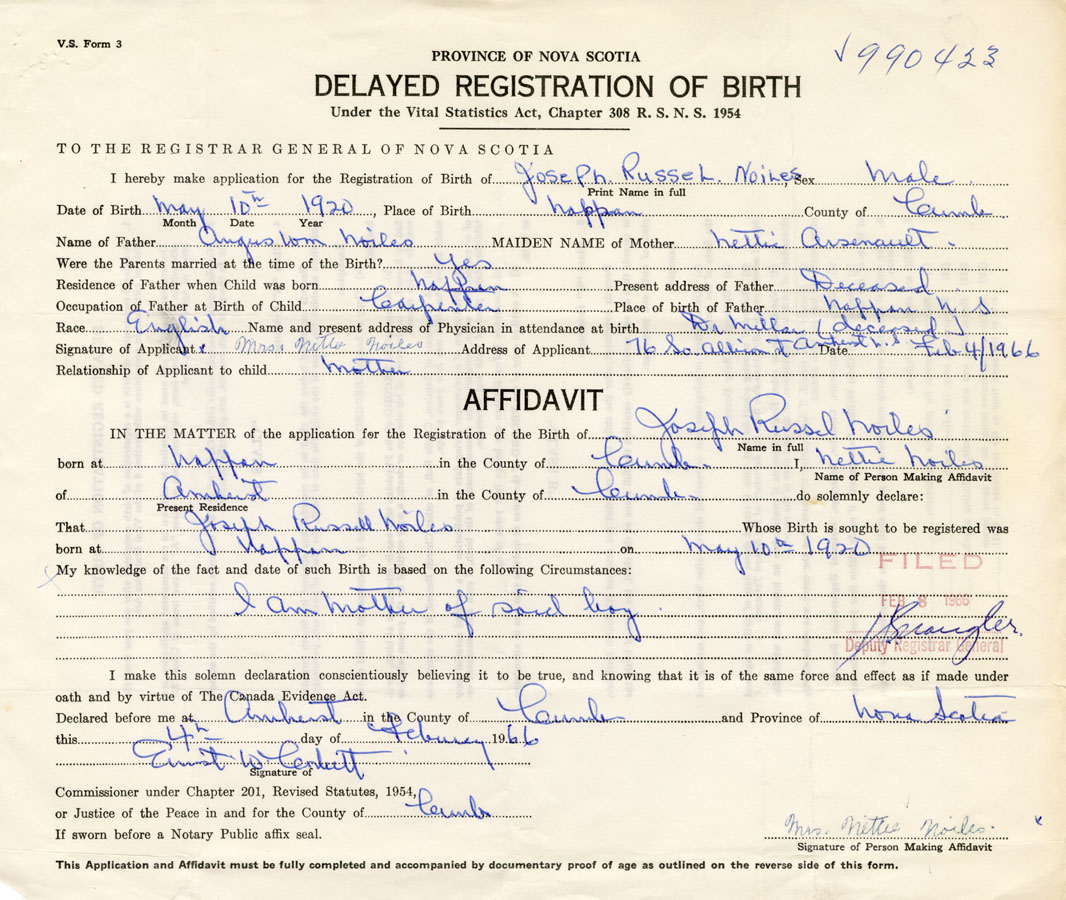 V.S. Form 3
√990423
PROVINCE OF NOVA SCOTIA
DELAYED REGISTRATION OF BIRTH
Under the Vital Statistics Act, Chapter 308 R. S. N. S. 1954
TO THE REGISTRAR GENERAL OF NOVA SCOTIA
I hereby make application for the Registration of Birth of Joseph. Russel. Noiles, Sex Male
Print Name in full
Date of Birth May 10th 1920, Place of Birth Nappan County of Cumb
Month Date Year
Name of Father Angus Wm Noiles MAIDEN NAME of Mother Nettie Arsenault.
Were the Parents married at the time of the Birth? Yes
Residence of Father when Child was born Nappan Present address of Father Deceased
Occupation of Father at Birth of Child Carpenter Place of birth of Father Nappan N S
Race English Name and present address of Physician in attendance at birth Dr Millar (deceased)
Signature of Applicant x Mrs. Nettie Noiles Address of Applicant 76 So Albion St Amherst N.S Date Feb 4/1966
Relationship of Applicant to child Mother
AFFIDAVIT
IN THE MATTER of the application for the Registration of the Birth of Joseph Russel Noiles
Name in full
born at Nappan in the County of Cumb. I, Nettie Noiles
Name of Person Making Affidavit
of Amherst in the County of Cumb do solemnly declare:
Present Residence
That Joseph Russell Noiles Whose Birth is sought to be registered was
born at Nappan on May 10th 1920
FILED
My knowledge of the fact and date of such Birth is based on the following Circumstances:
FEB 8 1966
I am Mother of said boy.
Deputy Registrar General
I make this solemn declaration conscientiously believing it to be true, and knowing that it is of the same force and effect as if made under
oath and by virtue of The Canada Evidence Act.
Declared before me at Amherst in the County of Cumb and Province of Nova Scotia
this 4th day of Febuary 1966
Ernst W Corbett
Signature of
Commissioner under Chapter 201, Revised Statutes, 1954,
or Justice of the Peace in and for the County of Cumb
If sworn before a Notary Public affix seal.
Mrs. Nettie Noiles. x
Signature of Person Making Affidavit
This Application and Affidavit must be fully completed and accompanied by documentary proof of age as outlined on the reverse side of this form.